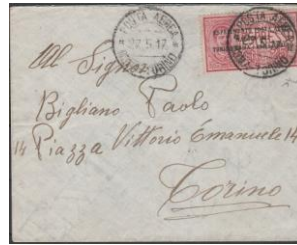 POSTA AEREA
22.5.17
POSTA AEREA
22.5.17
TORINO
All Sigr
Bigliano Paolo
14 Piazza Vittorio Emanuele 14
Torino